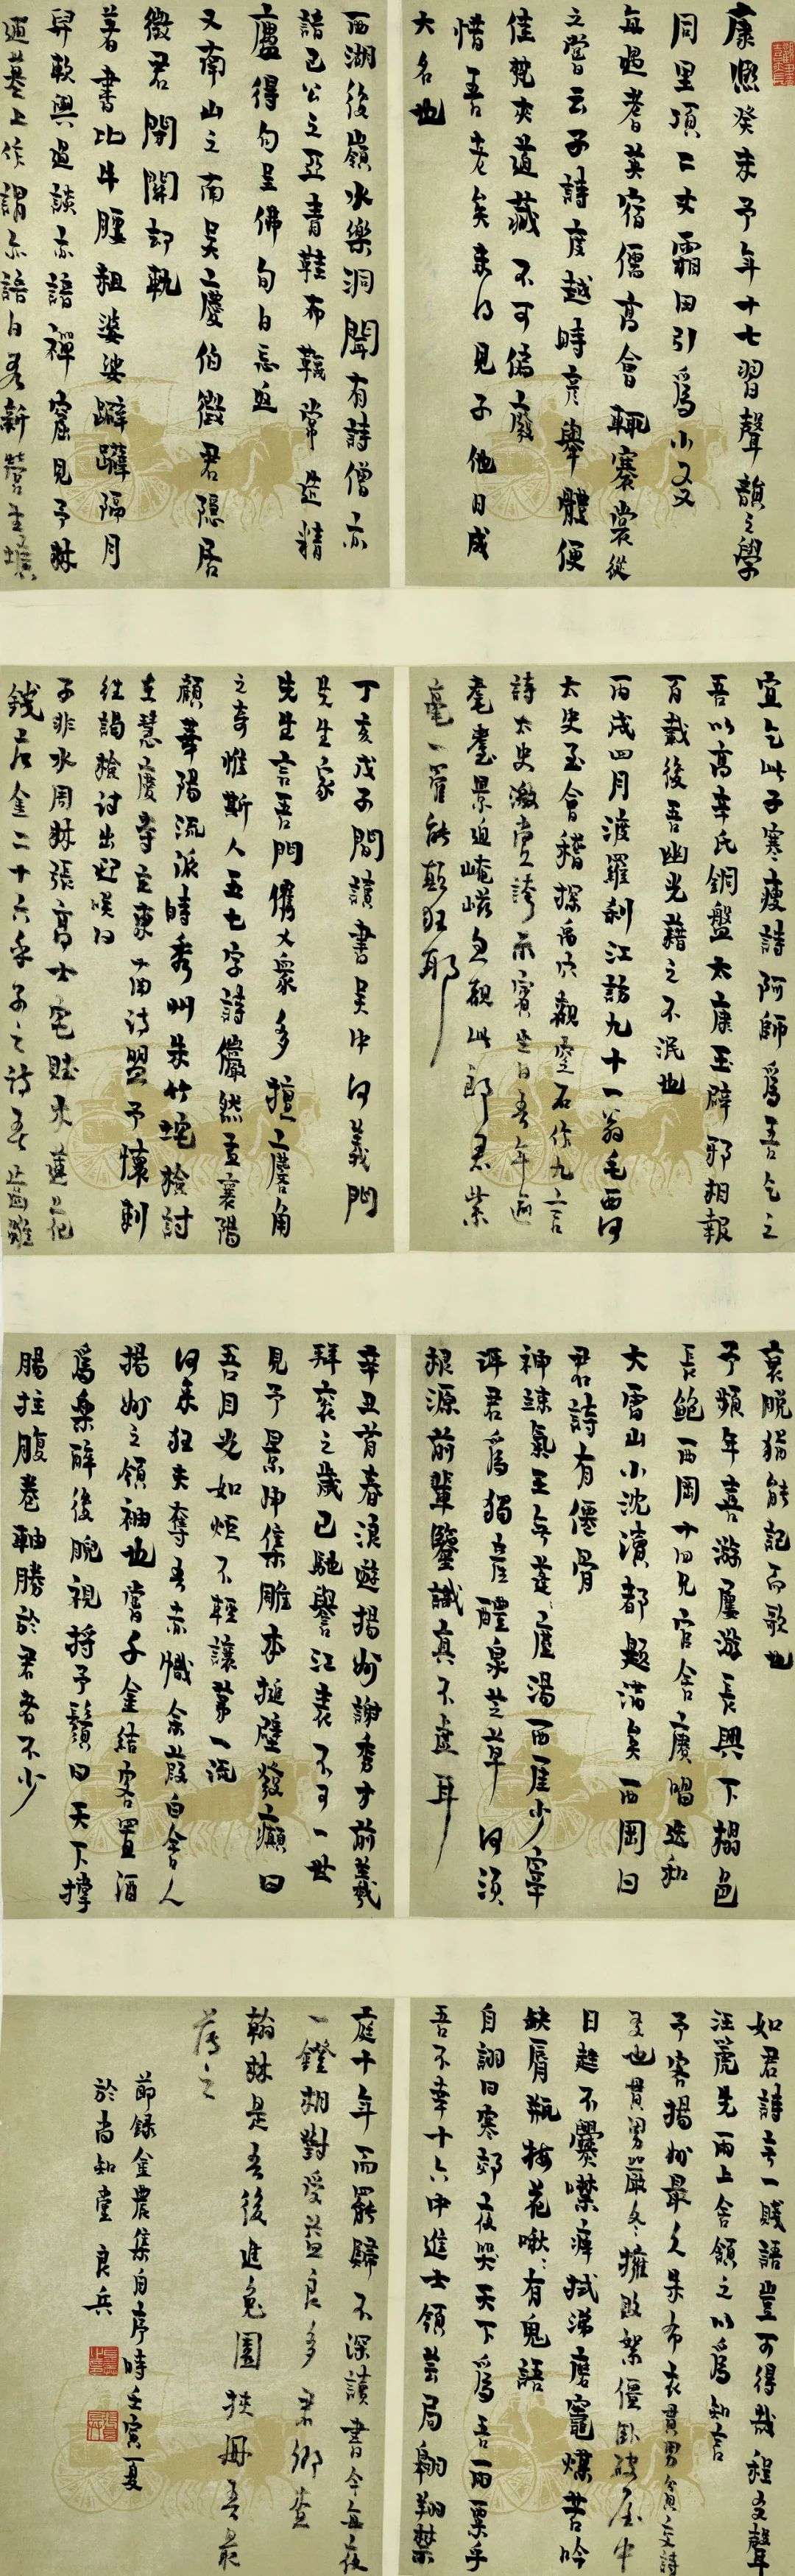 康熙癸未予年十七習聲韻之學
同里項二丈霜田引爲小友
每過耆英宿儒高會輒褰裳從
之嘗云子詩度越時彦舉體便
佳梵夾道藏不可偏廢
惜吾老矣未得見子他日成
大名也
西湖後嶺水樂洞聞有詩僧亦
諳已公之亞青鞋布韈常造精
廬得句呈佛旬日忘返
又南山之南吳慶伯徵君隱居
徵君閉關却軌
著書比牛腰粗婆娑躃躠隔月
舁軟輿過談亦諳禪窟見予林
逋墓上作謂亦諳曰吾新營生壙
宜乞此子寒瘦詩阿師爲吾乞之
吾以高辛氏銅盤太康玉辟邪相報
百載後吾幽光藉之不泯也
丙戌四月渡羅刹江訪九十一翁毛西河
太史至會稽探禹穴觀窆石作九言
詩太史激賞誇示賓坐曰吾年逾
耄耋景迫崦嵫忽覩此郎君紫
毫一管能顛狂耶
丁亥戊子間讀書吳中何義門
先生家
先生言吾門儁乂衆多擅麐角
之奇惟斯人五七字詩儼然孟襄陽
顧華陽流派時秀州朱竹垞檢討
在慧慶寺主東南詩盟予懷刺
往謁檢討出迎笑曰
子非水周林張高士宅賦木蓮花
錢唐金二十六乎子之詩吾齒雖
衰脱猶能記而歌也
予頻年喜游屢游長興下榻邑
長鮑西岡十四兄官舍賡唱迭和
大雷山小沈瀆都題滿矣西岡曰
君詩有僊骨
神竦氣王無蓬塵湯西厓少宰
評君爲獨産醴泉芝草何須
根源前輩鑒識真不虛耳
辛丑首春浪遊揚州謝秀才前羲
拜衮之歲已馳譽江表不可一世
見予景申集雕本搥壁發癲曰
吾目光如炬不輕讓第一流
何來狂夫奪吾赤幟余葭白舍人
揚州之領袖也嘗千金結客置酒
爲樂醉後睨視捋予鬚曰天下撐
腸拄腹卷軸勝於君者不少
如君詩無一賤語豈可得哉程友聲
汪蒐先兩上舍領之以爲知言
予客揚州最久朱布衣貫男貧交詩
友也貫男嚴冬擁敗絮僵卧破屋中
日趖不爨噤瘁拭涕磨竈煤苦吟
缺脣瓶梅花啾啾有鬼語
自詡曰寒郊夜哭天下爲吾雨粟乎
吾不幸十六中進士領芸局翱翔禁
庭十年而罷歸不深讀書今每夜
一鐙相對受益良多君鄉黄
翰林是吾後進兔園挾册吾最
薄之
節録金農集自序時壬寅夏
於尚知堂良兵